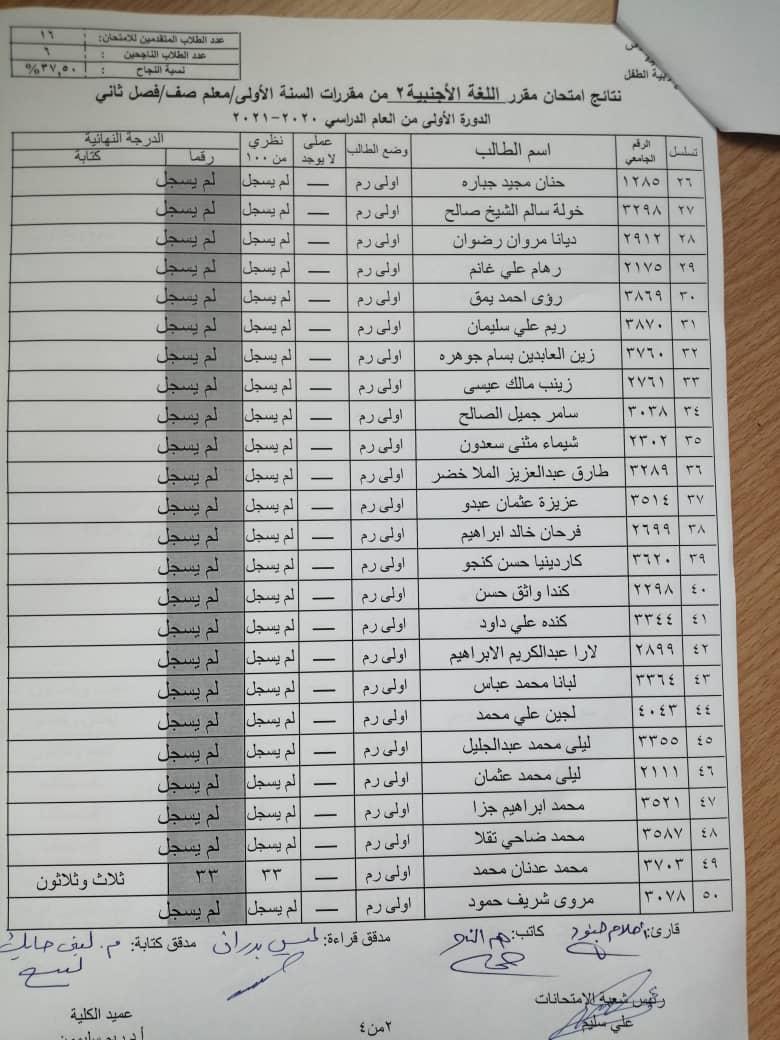 عدد الطلاب المتقدمين للامتحان: ١٦
عدد الطلاب الناجحين : ٦
نسبة النجاح : ٣٧,٥٠%
ربية الطفل
نتائج امتحان مقرر اللغة الأجنبية ٢ من مقررات السنة الأولى/معلم صف/فصل ثاني
الدورة الأولى من العام الدراسي ٢٠٢٠-٢٠٢١
تسلسل الرقم الجامعي اسم الطالب وضع الطالب عملي لا يوجد نظري من ١٠٠ الدرجة النهائية رقما كتابة
٢٦ ١٢٨٥ حنان مجيد جباره اولى رم — لم يسجل لم يسجل
٢٧ ٣٢٩٨ خولة سالم الشيخ صالح اولى رم — لم يسجل لم يسجل
٢٨ ٢٩١٢ ديانا مروان رضوان اولى رم — لم يسجل لم يسجل
٢٩ ٢١٧٥ رهام علي غانم اولى رم — لم يسجل لم يسجل
٣٠ ٣٨٦٩ رؤى احمد يمق اولى رم — لم يسجل لم يسجل
٣١ ٣٨٧٠ ريم علي سليمان اولى رم — لم يسجل لم يسجل
٣٢ ٣٧٦٠ زين العابدين بسام جوهره اولى رم — لم يسجل لم يسجل
٣٣ ٢٧٦١ زينب مالك عيسى اولى رم — لم يسجل لم يسجل
٣٤ ٣٠٣٨ سامر جميل الصالح اولى رم — لم يسجل لم يسجل
٣٥ ٢٣٠٢ شيماء مثنى سعدون اولى رم — لم يسجل لم يسجل
٣٦ ٣٢٨٩ طارق عبدالعزيز الملا خضر اولى رم — لم يسجل لم يسجل
٣٧ ٣٥١٤ عزيزة عثمان عبدو اولى رم — لم يسجل لم يسجل
٣٨ ٢٦٩٩ فرحان خالد ابراهيم اولى رم — لم يسجل لم يسجل
٣٩ ٣٦٢٠ كاردينيا حسن كنجو اولى رم — لم يسجل لم يسجل
٤٠ ٢٢٩٨ كندا واثق حسن اولى رم — لم يسجل لم يسجل
٤١ ٣٣٤٤ كنده علي داود اولى رم — لم يسجل لم يسجل
٤٢ ٢٨٩٩ لارا عبدالكريم الابراهيم اولى رم — لم يسجل لم يسجل
٤٣ ٣٣٦٤ لبانا محمد عباس اولى رم — لم يسجل لم يسجل
٤٤ ٤٠٤٣ لجين علي محمد اولى رم — لم يسجل لم يسجل
٤٥ ٣٣٥٥ ليلى محمد عبدالجليل اولى رم — لم يسجل لم يسجل
٤٦ ٢١١١ ليلى محمد عثمان اولى رم — لم يسجل لم يسجل
٤٧ ٣٥٢١ محمد ابراهيم جزا اولى رم — لم يسجل لم يسجل
٤٨ ٣٥٨٧ محمد ضاحي تقلا اولى رم — لم يسجل لم يسجل
٤٩ ٣٧٠٣ محمد عدنان محمد اولى رم — ٣٣ ٣٣ ثلاث وثلاثون
٥٠ ٣٠٧٨ مروى شريف حمود اولى رم — لم يسجل لم يسجل
قارئ: كاتب: مدقق قراءة: مدقق كتابة:
رئيس شعبة الامتحانات
علي سليم
عميد الكلية
٢من٤